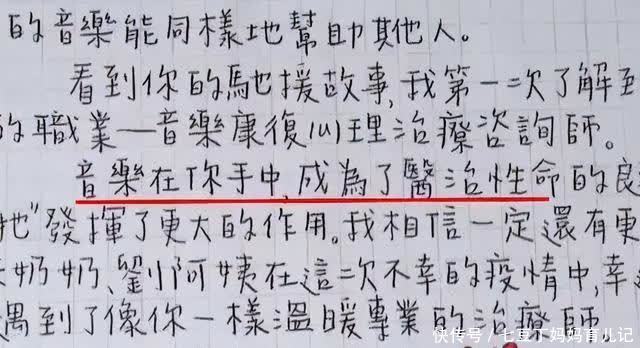 的音樂能同樣地幫助其他人。
看到你的馳援故事,我第一次了解到
的職業—音樂康復心理治療咨詢師。
音樂在你手中,成為了醫治性命的良
地"發揮了更大的作用。我相信一定還有更
奶奶、劉阿姨在這次不幸的疫情中,幸
遇到了像你一樣溫暖專業的治療師
快传号 / 七豆丁妈妈育儿记